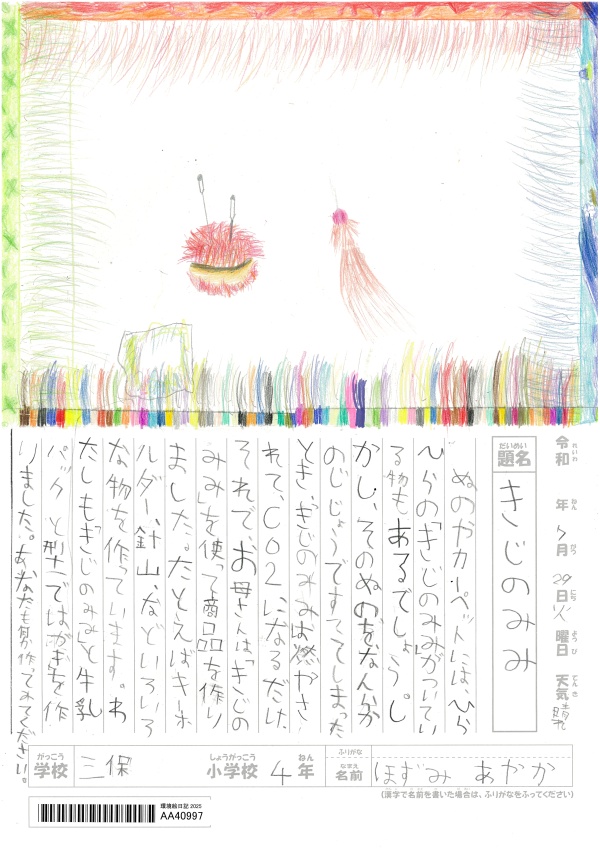 令和 年 7月 29日 火曜日 天気 晴れ
題名 きじのみみ
ぬのやカーペットには、ひら
ひらの「きじのみみ」がついてい
る物もあるでしょう。し
かし、そのぬのをなんんか
のじじょうですててしまった
とき、「きじのみみ」は燃やさ
れて、CO2になるだけ。
それでお母さんは「きじの
みみ」を使って商品を作り
ました。たとえばキーホ
ルダー、針山、などいろいろ
な物を作っています。わ
たしも「きじのみみ」と牛乳
パックと型ではがきを作
りました。あなたも是非作ってみてください。
学校 三保 小学校 4年 名前 ほずみ あやか
(漢字で名前を書いた場合は、ふりがなをふってください)
環境絵日記 2025
AA40997